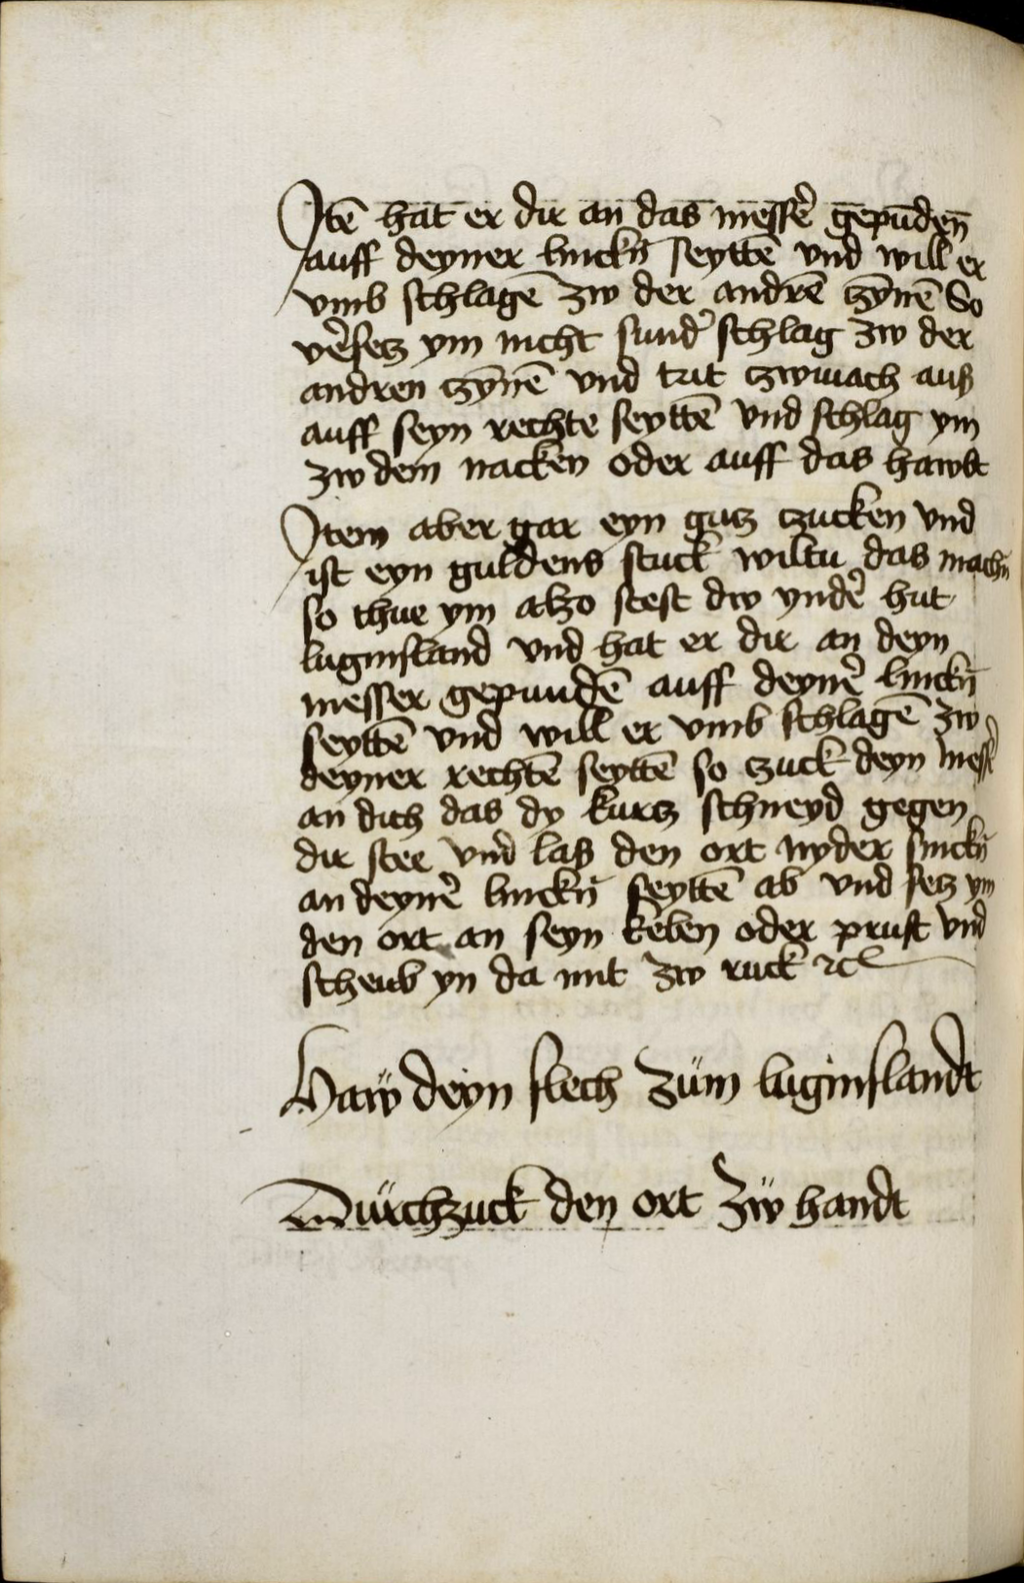 Itē hat er dir an das messe᷑ gepūden
auff deyner linckn̄ seyttē vnd will er
vmb schlagē zw der andrē czȳnē So
ve᷑setz ym nicht sunde᷑ schlag zw der
andren czȳnē vnd trit czwinach auß
auff seyn rechte seyttē vnd schlag ym
zw dem nacken oder auff das hawbt
Item aber gar eyn gutz czucken vnd
ist eyn guldens stuck wiltu das machn̄
so thue ym alzo stest dw ynde᷑ hut
luginsland vnd hat er dir an deyn
messer gepundē auff deyne᷑ linckn̄
seyttē vnd will er vmb schlagē zw
deyner rechtē seyttē so czuck deyn messe᷑
an dich das dy kurtz schneyd gegen
dir stee vnd laß den ort nyder sinckn̄
an deyne᷑ linckn̄ seyttē ab vnd setz ym
den ort an seyn keben oder prust vnd
scheub yn da mit zw ruck ⁊c
Haẅ deyn slech züm luginslandt
Dürchzuck den ort zẅ handt